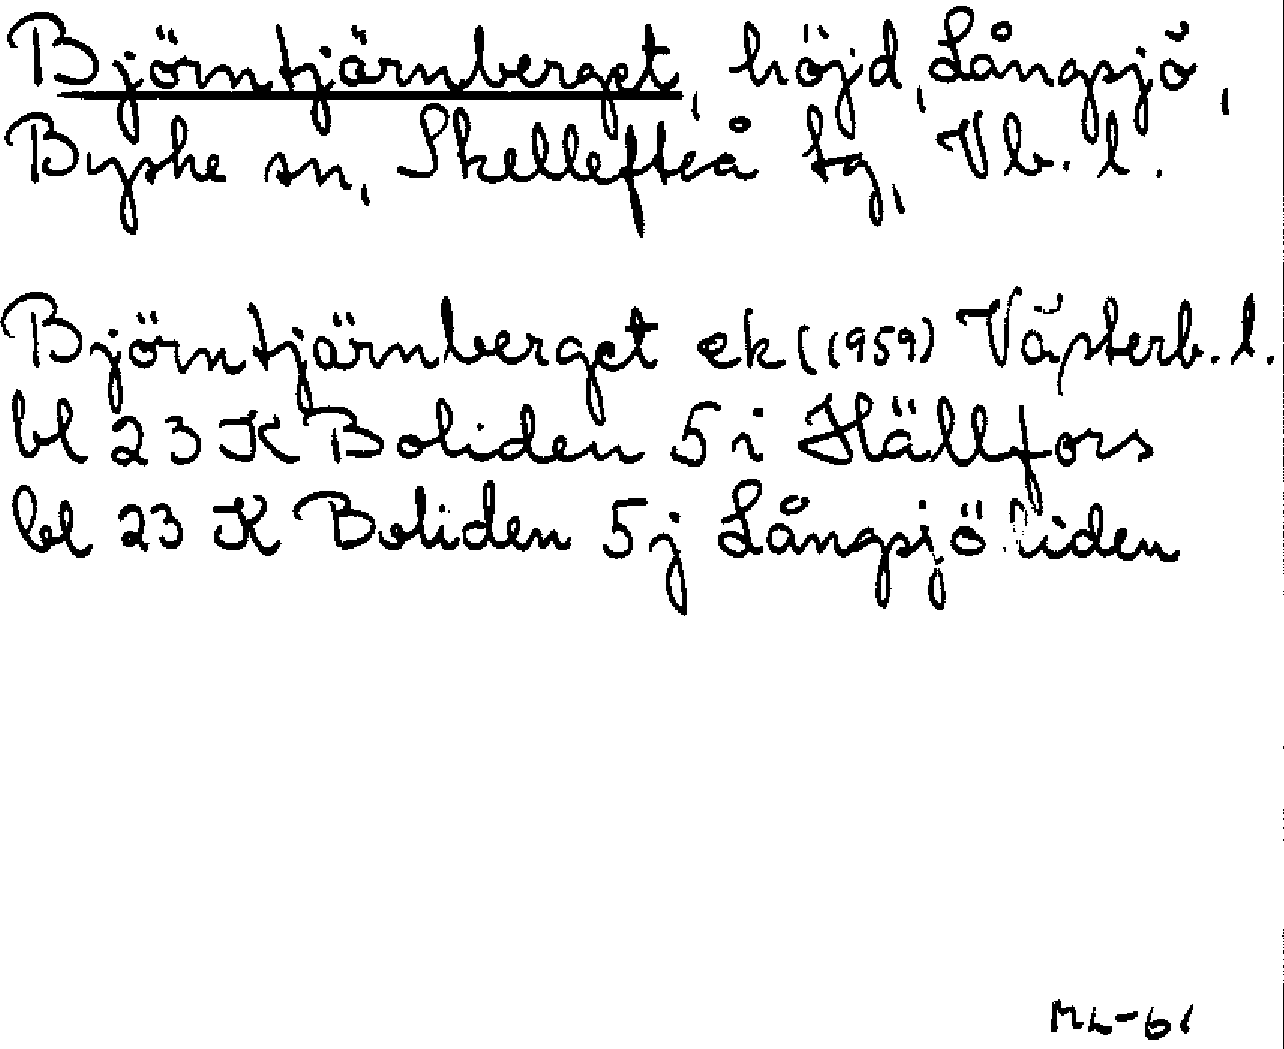 Björntjärnberget, höjd, Långsjö,
Byske sn, Skellefteå tg, Vb. l.
Björntjärnberget ek (1959) Västerb. l.
bl 23 K Boliden 5 i Hällfors
bl 23 K Boliden 5 j Långsjöliden
ML-61